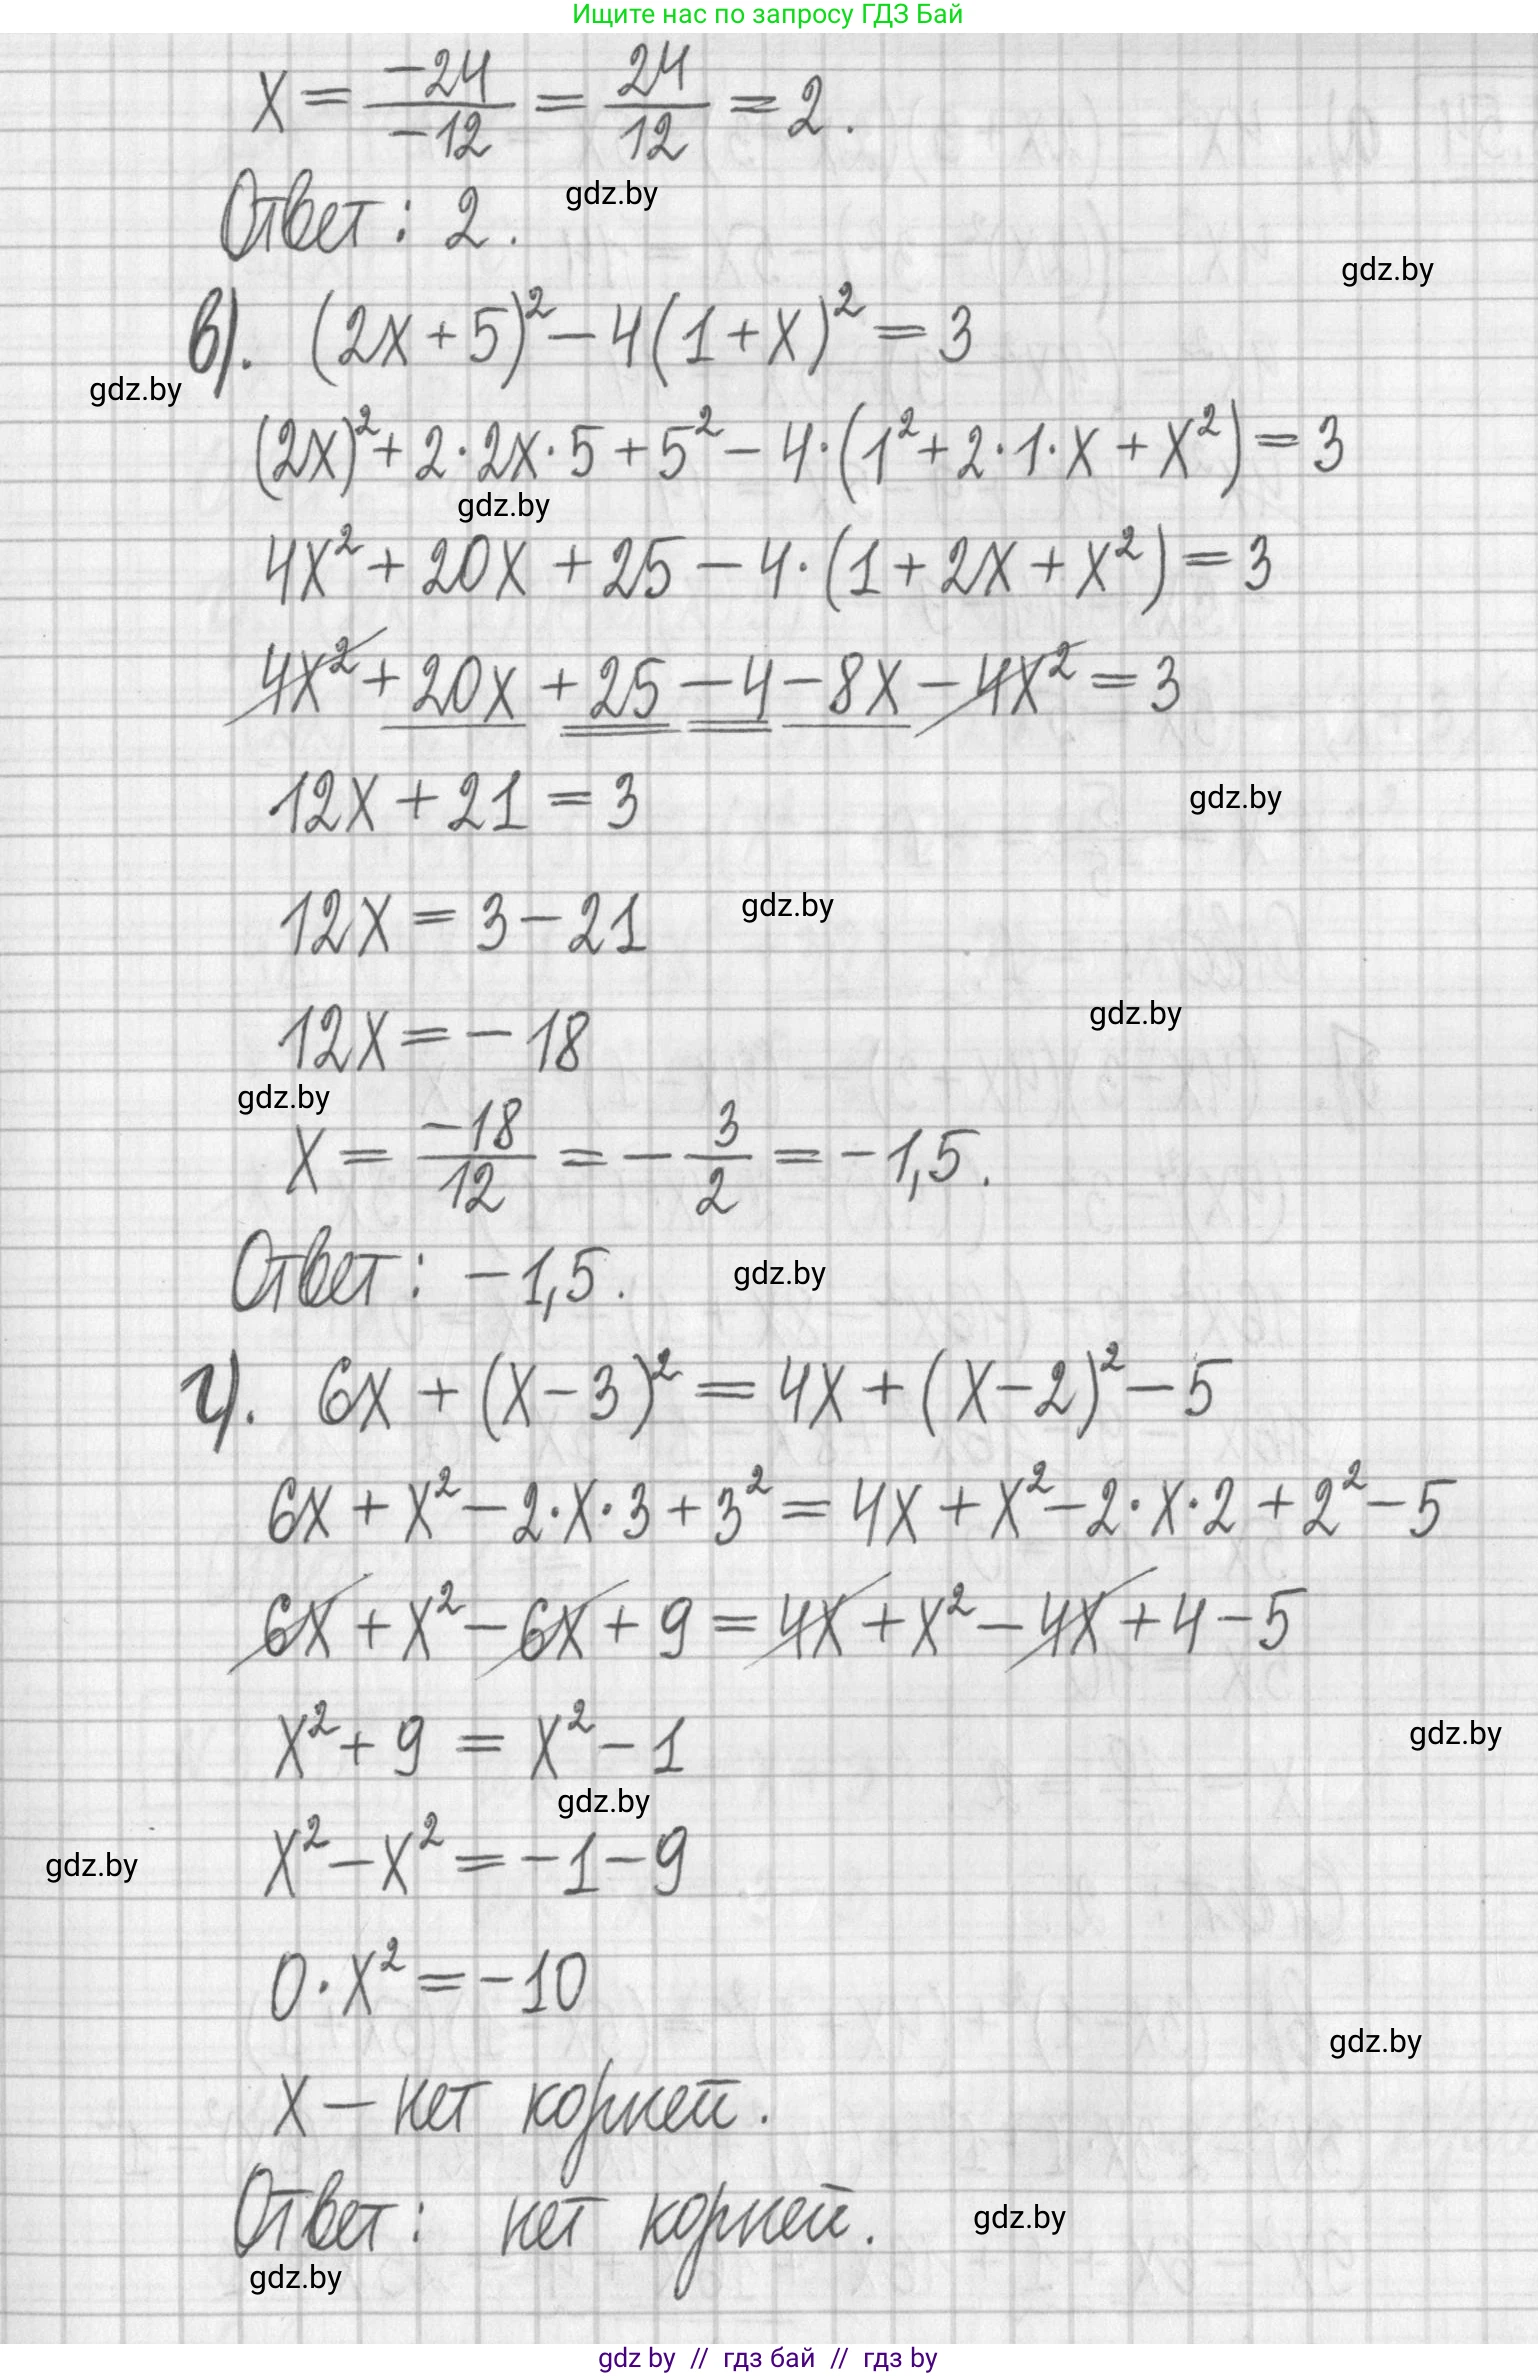 Ищите нас по запросу ГДЗ Бай
x = -24/-12 = 24/12 = 2.
Ответ: 2.
gdz.by
gdz.by
в). (2x+5)² - 4(1+x)² = 3
gdz.by
(2x)² + 2·2x·5 + 5² - 4·(1² + 2·1·x + x²) = 3
gdz.by
4x² + 20x + 25 - 4·(1 + 2x + x²) = 3
4x² + 20x + 25 - 4 - 8x - 4x² = 3
12x + 21 = 3
gdz.by
12x = 3 - 21
gdz.by
12x = -18
gdz.by
gdz.by
x = -18/12 = -3/2 = -1,5.
Ответ: -1,5.
gdz.by
г). 6x + (x-3)² = 4x + (x-2)² - 5
6x + x² - 2·x·3 + 3² = 4x + x² - 2·x·2 + 2² - 5
6x + x² - 6x + 9 = 4x + x² - 4x + 4 - 5
x² + 9 = x² - 1
gdz.by
gdz.by
x² - x² = -1 - 9
gdz.by
0·x² = -10
gdz.by
x - нет корней.
Ответ: нет корней.
gdz.by
gdz.by
gdz by // гдз бай // гдз by